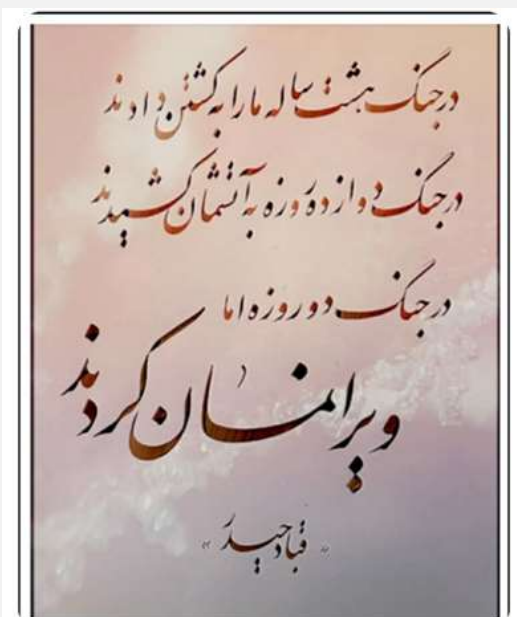 در جنگ هشت ساله ما را به کشتن دادند
در جنگ دوازده روزه به آتشمان کشیدند
در جنگ دو روزه اما
ویرانمان کردند
" قباد حیدر "